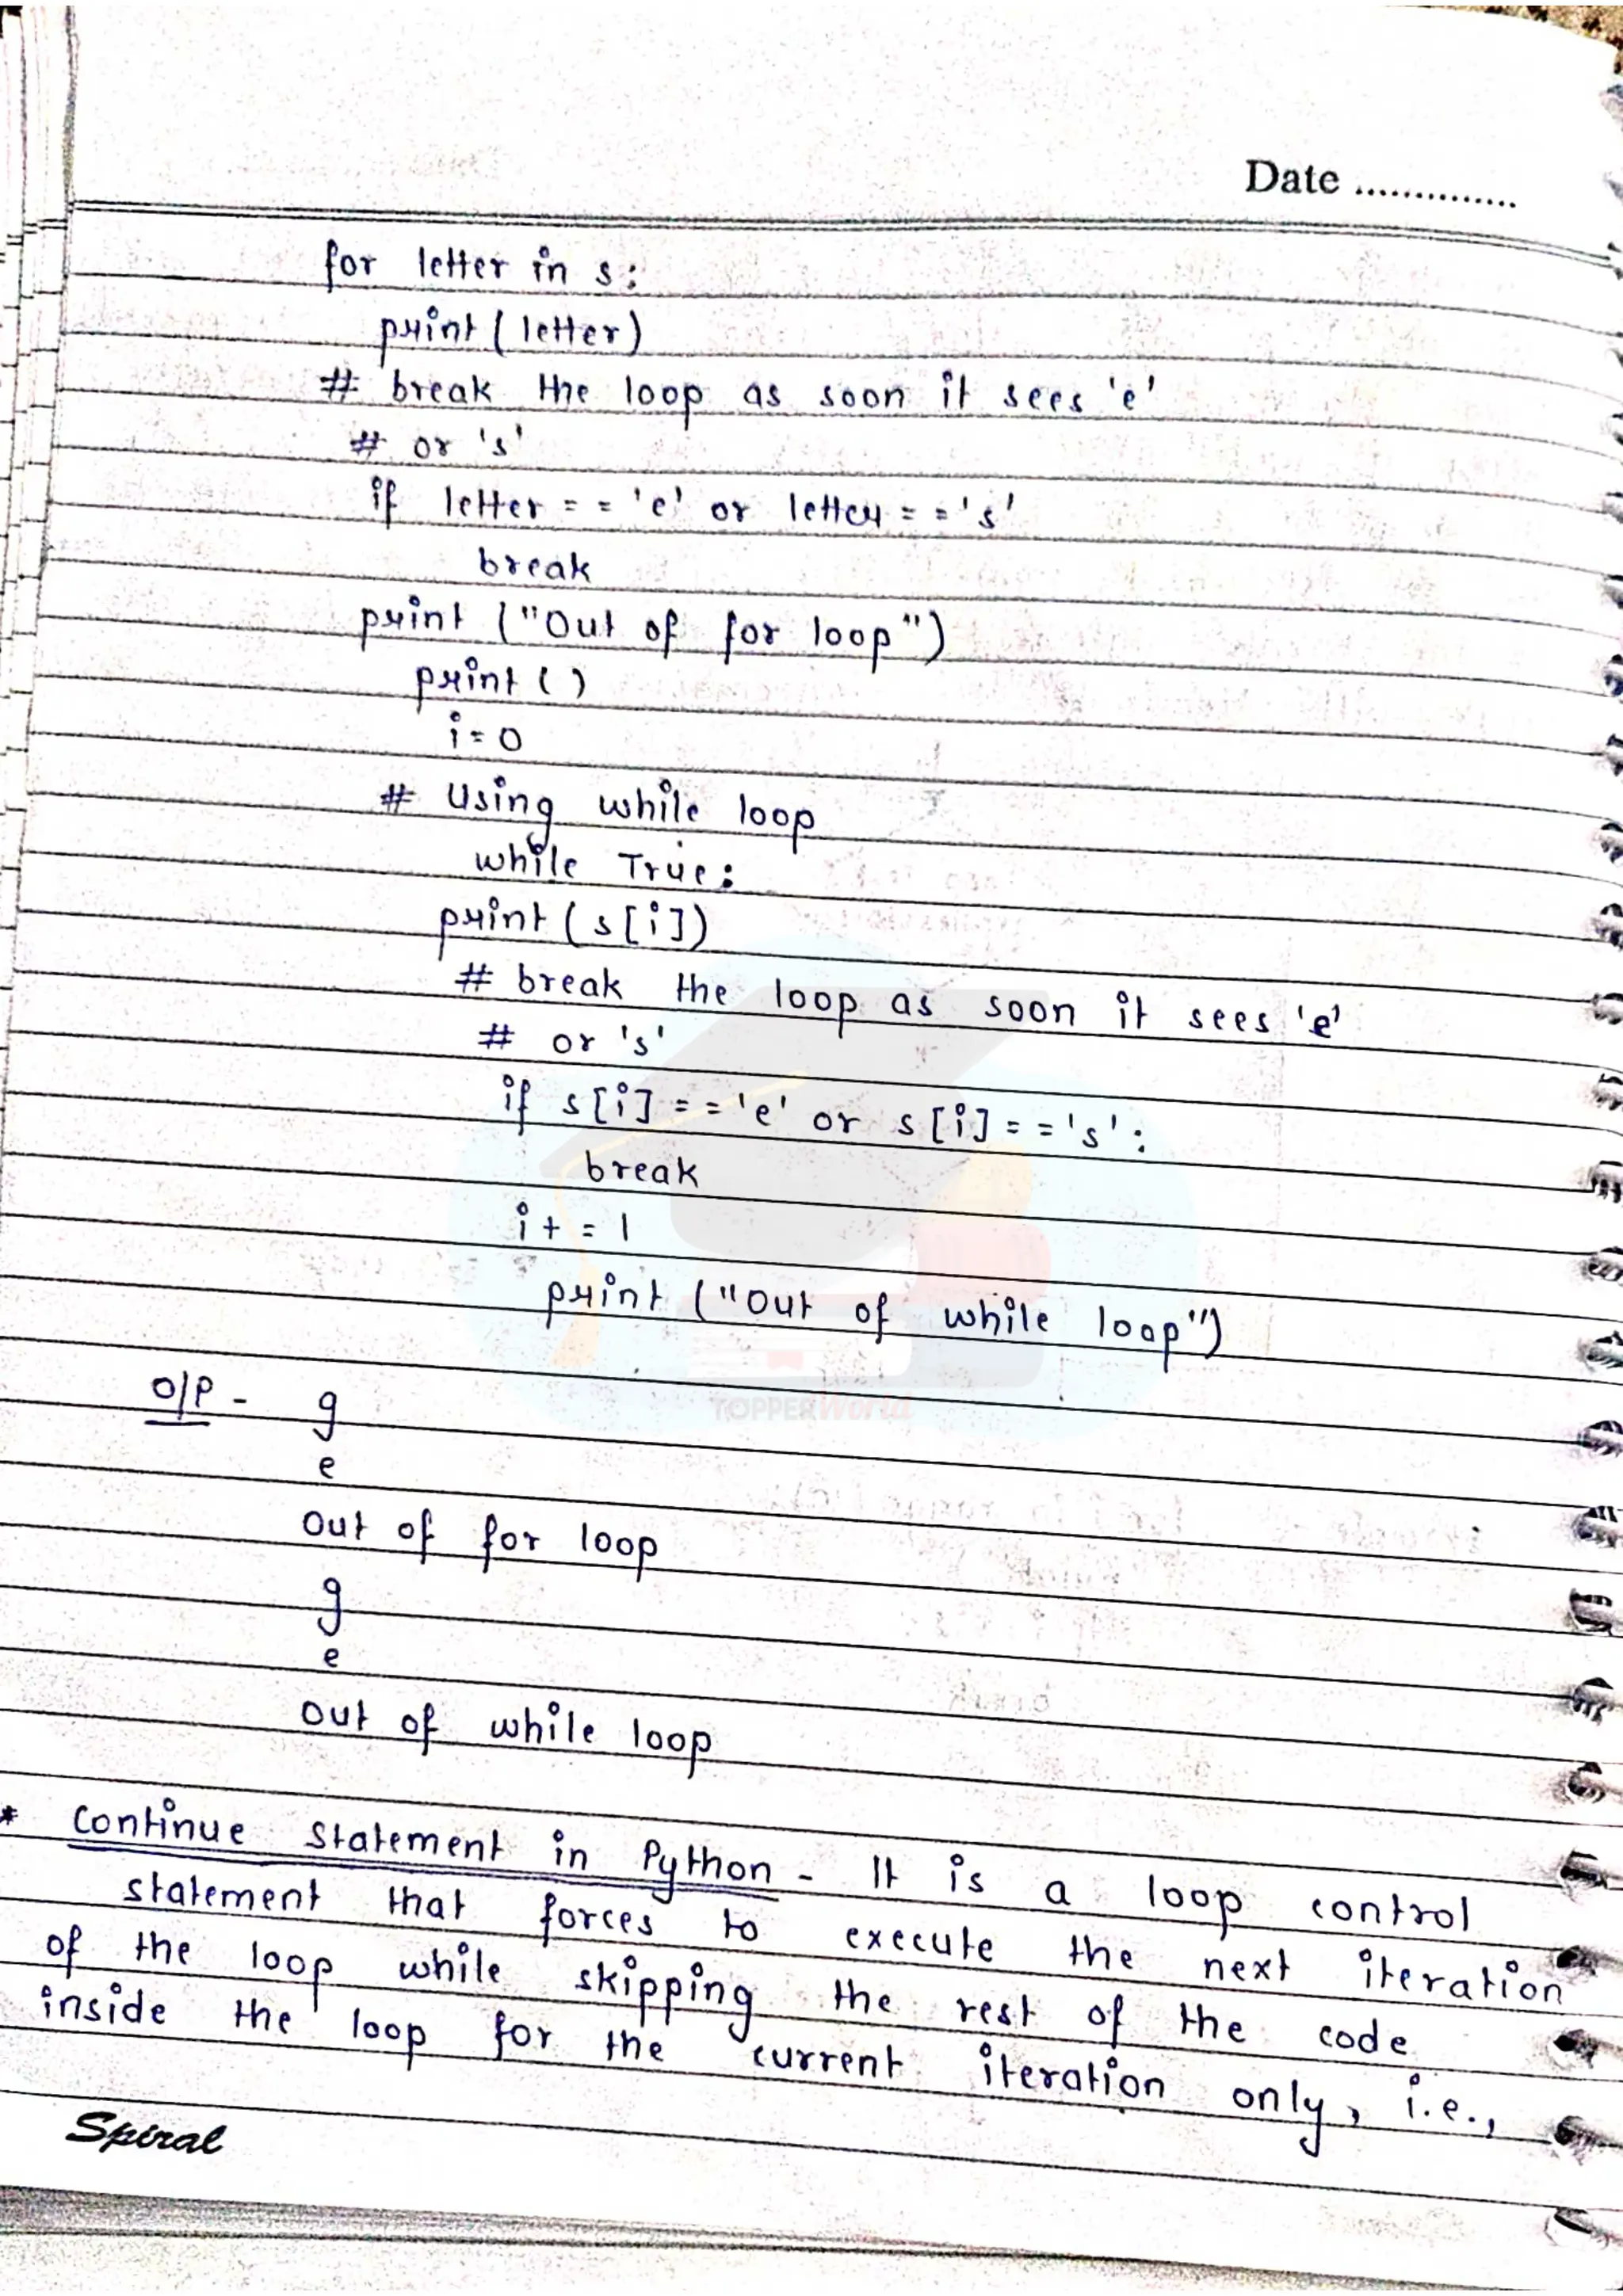 Date ..............
for letter in s:
print (letter)
# break the loop as soon it sees 'e'
# or 's'
if letter == 'e' or letter == 's'
break
print ("Out of for loop")
print ( )
i = 0
# Using while loop
while True:
print (s[i])
# break the loop as soon it sees 'e'
# or 's'
if s[i] == 'e' or s[i] == 's':
break
i + = 1
print ("Out of while loop")
TOPPERWorld
O/P - g
e
Out of for loop
g
e
Out of while loop
* Continue Statement in Python - It is a loop control
statement that forces to execute the next iteration
of the loop while skipping the rest of the code
inside the loop for the current iteration only, i.e.,
Spiral